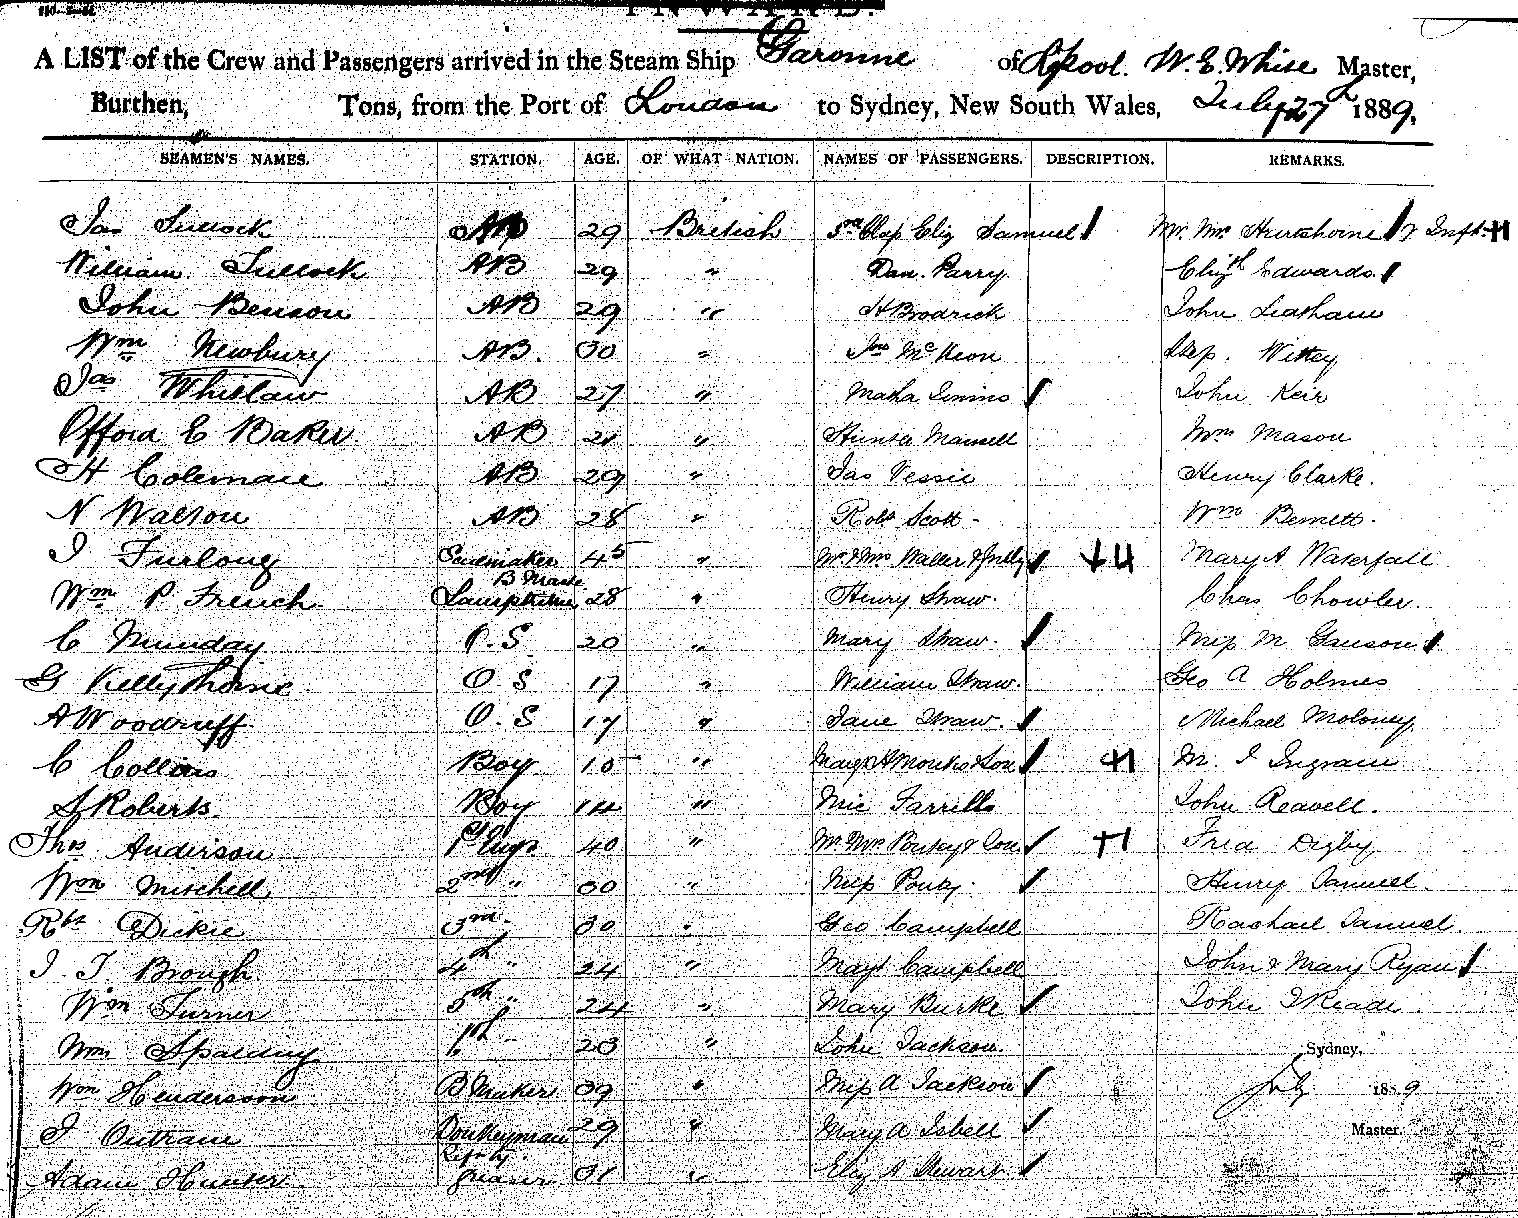 INWARD.
A LIST of the Crew and Passengers arrived in the Steam Ship Garonne of Lpool. W. E. White Master,
Burthen, Tons, from the Port of London to Sydney, New South Wales, July 27 1889,
SEAMEN'S NAMES. STATION. AGE. OF WHAT NATION. NAMES OF PASSENGERS. DESCRIPTION. REMARKS.
Jas Tullock AB 29 British Eliz Samuel Mr. Mrs Hurtshorne & Inft
William Tullock AB 29 " Dan. Parry Elizth Edwards
John Benson AB 29 " H Brodrick John Leatham
Wm Newbury AB. 30 " Jas McKeon Step. Wittey
Jas Whitlaw AB 27 " John Keir
Offord E Baker AB 21 " Wm Mason
H Coleman AB 29 " Jas Vessie Henry Clarke.
N Walton AB 28 " Robt Scott - Wm Bennett.
J Furlong 45 " Mr & Mrs Waller & fmlly Mary A Waterfall
Wm P French B Maste Lamptrimr 28 " Henry Straw. Chas Chowler.
C Munday O.S 20 " Mary Straw. Miss M Ganson
G Kellythorne O S 17 " William Straw. Geo A Holmes
A Woodruff O.S 17 " Jane Straw. Michael Moloney
C Collins Boy 15 " & Son M. J Ingram
S Roberts. Boy 14 " Mic Farrells John Reavell.
Thos Anderson 1st Engr 40 " Mr Mrs & Son Fred Digby
Wm Mitchell 2nd " 30 " Miss Henry Samuel.
Rbt Dickie 3rd " 30 " Geo Campbell Rachael Samuel.
J. T Brough 4th " 24 " Magt Campbell John & Mary Ryan
Wm Turner 5th " 24 " Mary Burke John
Wm Spalding 6th " 23 " John Jackson. Sydney,
Wm Henderson B Maker 39 " Miss A Jackson July 1889
J Outram Donkeyman 29 " Mary A Isbell Master.
Adam Hunter greaser 31 " Eliz A Stewart